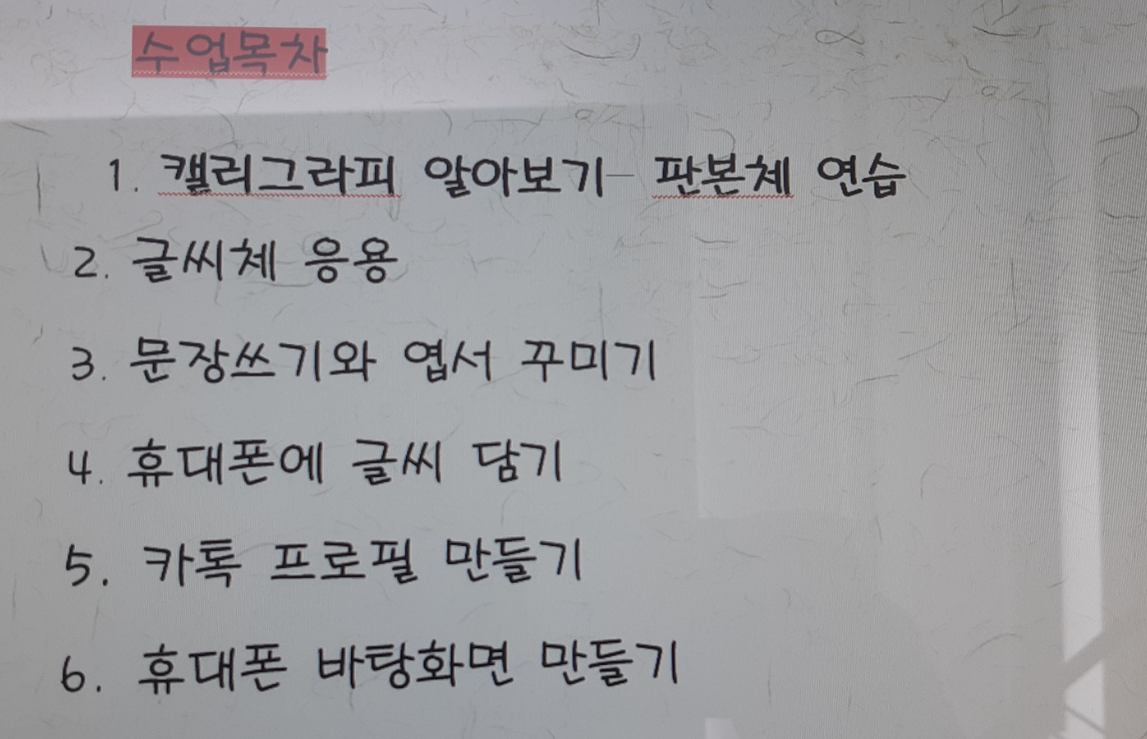 수업목차
1. 캘리그라피 알아보기- 판본체 연습
2. 글씨체 응용
3. 문장쓰기와 엽서 꾸미기
4. 휴대폰에 글씨 담기
5. 카톡 프로필 만들기
6. 휴대폰 바탕화면 만들기